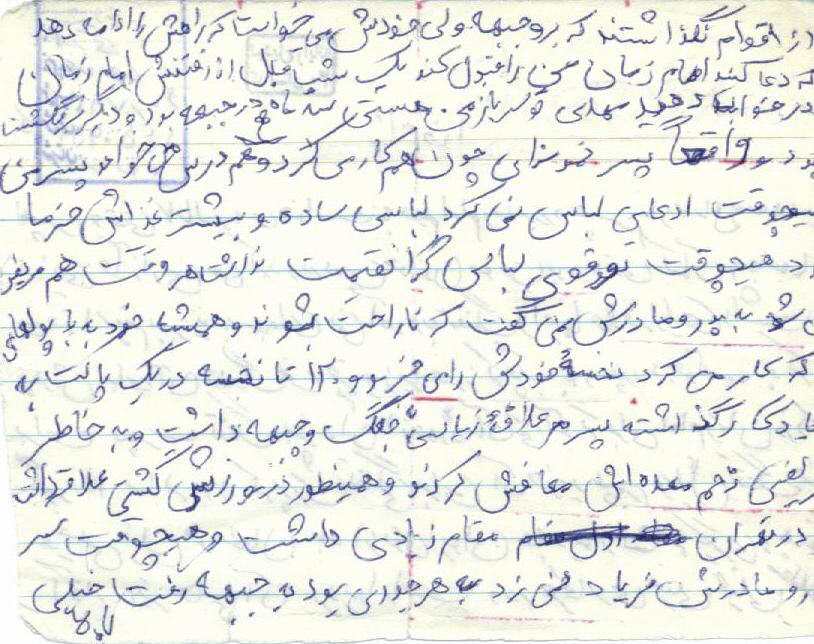 از اقوام نگذاشتند که برو جبهه ولی خودش می خواست که راهش را ادامه دهد
که دعا کند امام زمان من را قبول کند یک شب قبل از رفتنش امام زمان
در خواب دید مهدی تو سرباز من هستی سه ماه در جبهه بود و دیگر برنگشت
بود و واقعاً پسر نمونه‌ای چون هم کار می کرد و هم درس می خواند پسر من
هیچوقت ادعای لباس نمی کرد لباسی ساده و بیشتر غذاش خرما
د هیچوقت توقوی لباس گرانقیمت نداشت هر وقت هم مریض
می شد به پدر و مادرش نمی گفت که ناراحت بشوند و همیشه خود به با پولهای
که کار می کرد نسخهٔ خودش را می خرید و ۱۲ تا نسخه در یک پاکت به
یادگار گذاشته پسرم علاقهٔ زیاد جنگ و جبهه داشت و به خاطر
مریضی زخم معده اش معافش کردند و همینطور در ورزش کشتی علاقه داشت
در تهران مقام زیادی داشت و هیچوقت سر
و مادرش فریاد نمی زد به هر جوری بود به جبهه رفت خیلی